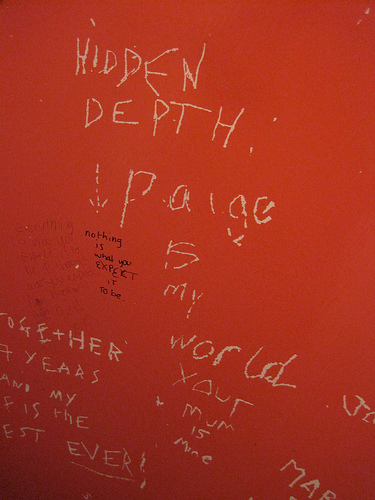 HIDDEN
DEPTH.
paige
IS
MY
world
nothing
is
what you
EXPEKT
it
to be.
TOGE+HER
7 YEARS
AND MY
IS the
EST EVER!
YOUR
MUM
IS
MINE